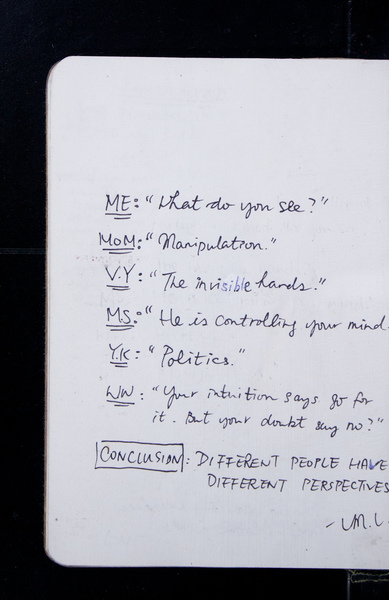 ME: "What do you see?"
MOM: "Manipulation."
V.Y: "The invisible hands."
MS.: "He is controlling your mind.
Y.K: "Politics."
WW: "Your intuition says go for
it. But your doubt say no?"
CONCLUSION: DIFFERENT PEOPLE HAVE
DIFFERENT PERSPECTIVES